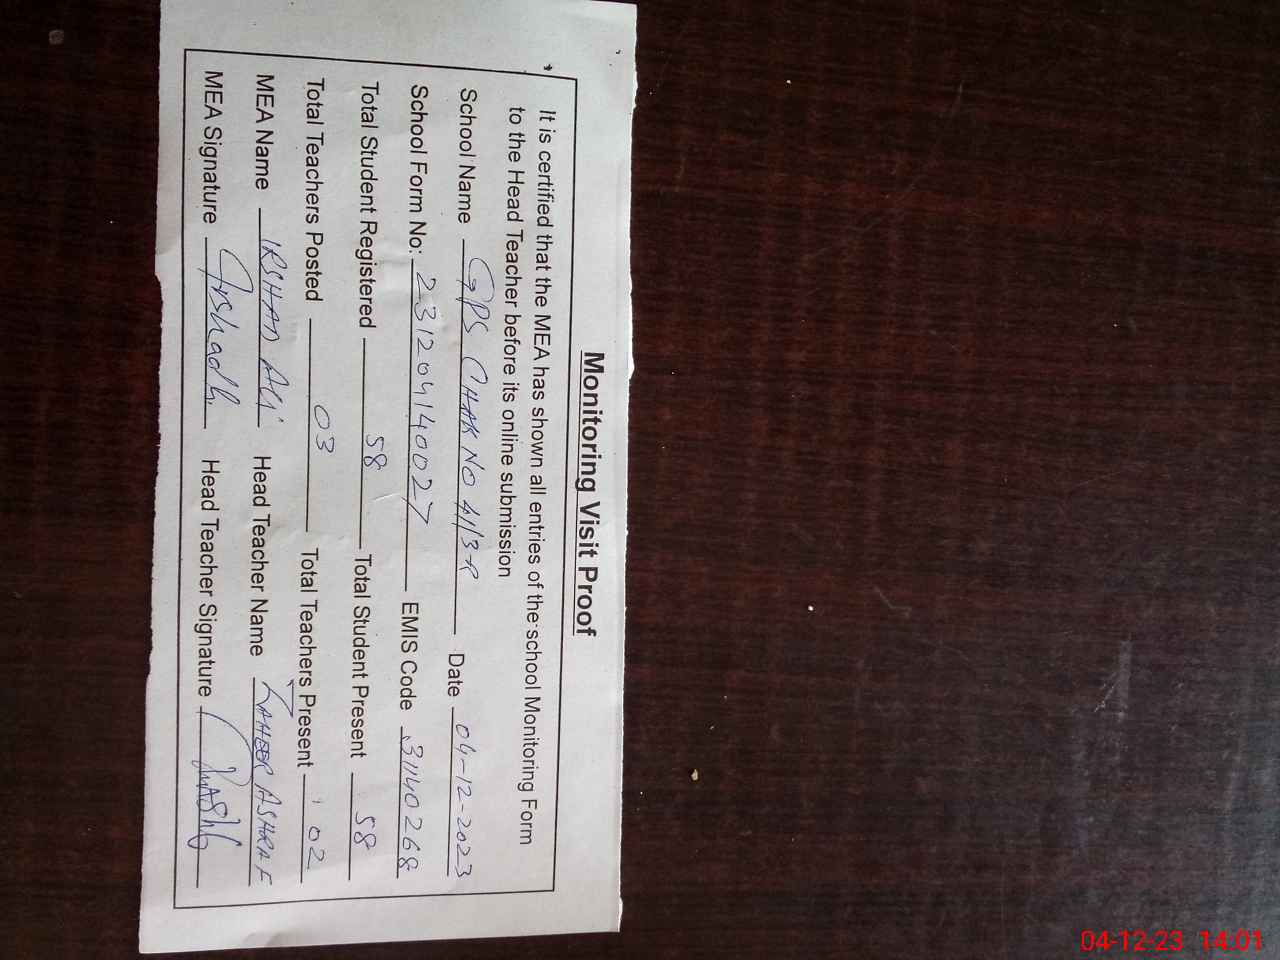 Monitoring Visit Proof
It is certified that the MEA has shown all entries of the school Monitoring Form
to the Head Teacher before its online submission
School Name GPS CHAK NO 41/3-R Date 04-12-2023
School Form No: 231204140027 EMIS Code 31140268
Total Student Registered 58 Total Student Present 58
Total Teachers Posted 03 Total Teachers Present 02
MEA Name IRSHAD ALI Head Teacher Name ASHRAF
MEA Signature Head Teacher Signature
04-12-23 14:01